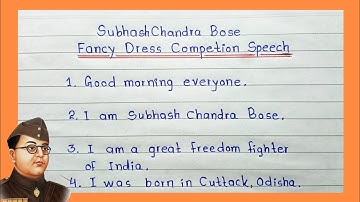 Subhash Chandra Bose
Fancy Dress Competion Speech
1. Good morning everyone.
2. I am Subhash Chandra Bose.
3. I am a great freedom fighter
of India.
4. I was born in Cuttack, Odisha.